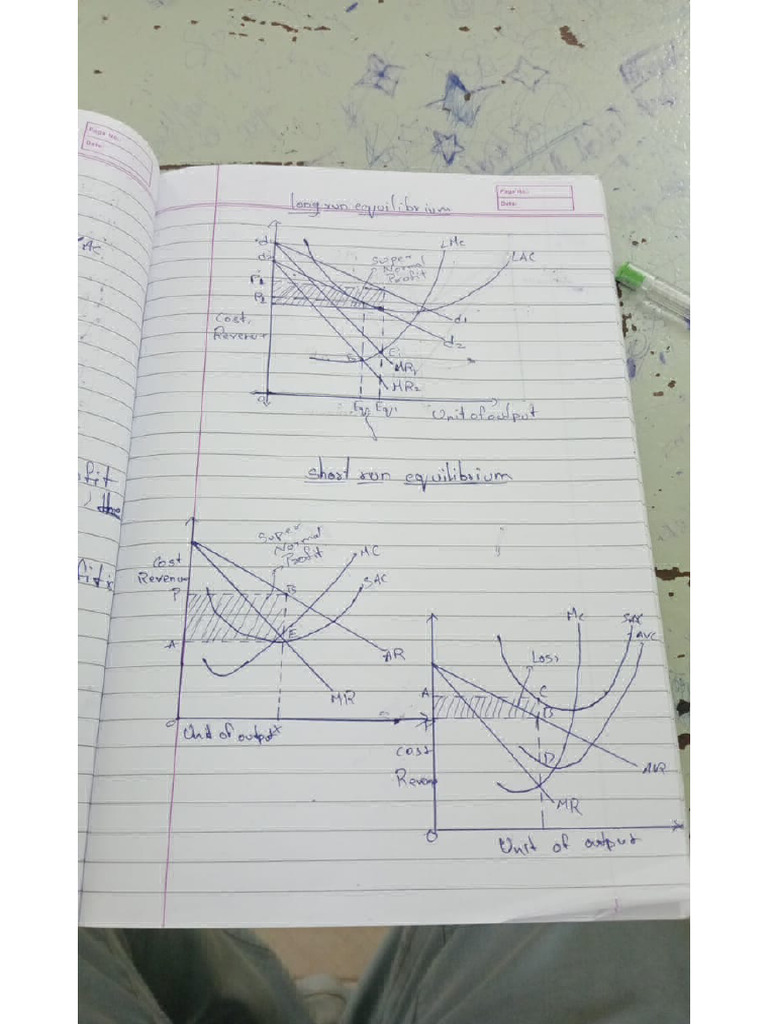 Page No.:
Date:
Ac
fit
Page No.:
Date:
Long run equilibrium
d1
d2
P1
P2
Super
Normal
Profit
LMC
LAC
Cost,
Revenue
d1
d2
E
E'
MR1
MR2
Eq2 Eq1
Unit of output
Short run equilibrium
Super
Normal
Profit
MC
SAC
Cost
Revenue
P
B
A
E
AR
MR
O
Unit of output
MC
SAC
AVC
Loss
A
C
B
P
Cost
D
AVR
Reven
MR
O
Unit of output